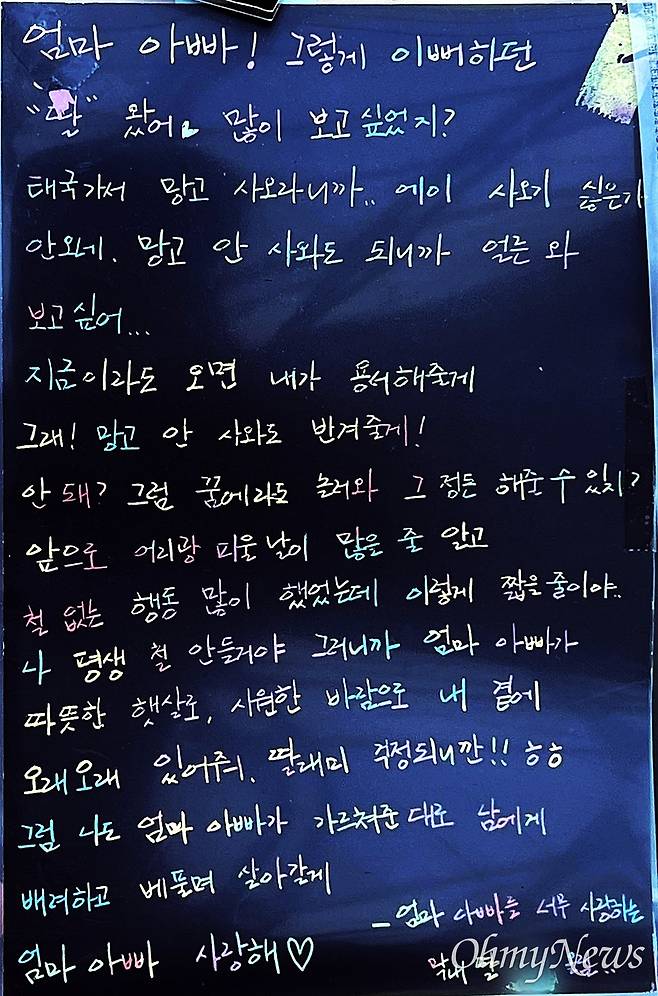 엄마 아빠! 그렇게 이뻐하던
"딸" 왔어. 많이 보고싶었지?
태국가서 망고 사오라니까.. 에이 사오기 싫은가
안오네. 망고 안 사와도 되니까 얼른 와
보고싶어...
지금이라도 오면 내가 용서해줄게
그래! 망고 안 사와도 반겨줄게!
안 돼? 그럼 꿈에라도 놀러와 그 정돈 해줄 수 있지?
앞으로 어리광 피울 날이 많을 줄 알고
철 없는 행동 많이 했었는데 이렇게 짧을 줄이야..
나 평생 철 안들거야 그러니까 엄마 아빠가
따뜻한 햇살로, 시원한 바람으로 내 곁에
오래오래 있어줘. 딸래미 걱정되니깐!! ㅎㅎ
그럼 나도 엄마 아빠가 가르쳐준대로 남에게
배려하고 베풀며 살아갈게
엄마 아빠 사랑해♡
- 엄마 아빠를 너무 사랑하는
막내 딸
OhmyNews